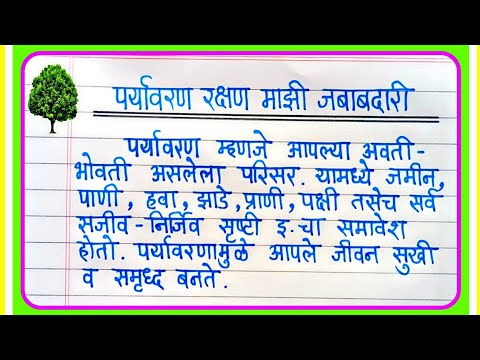 पर्यावरण रक्षण माझी जबाबदारी
पर्यावरण म्हणजे आपल्या अवती-
भोवती असलेला परिसर. यामध्ये जमीन,
पाणी, हवा, झाडे, प्राणी, पक्षी तसेच सर्व
सजीव-निर्जिव सृष्टी इ. चा समावेश
होतो. पर्यावरणामुळे आपले जीवन सुखी
व समृध्द बनते.